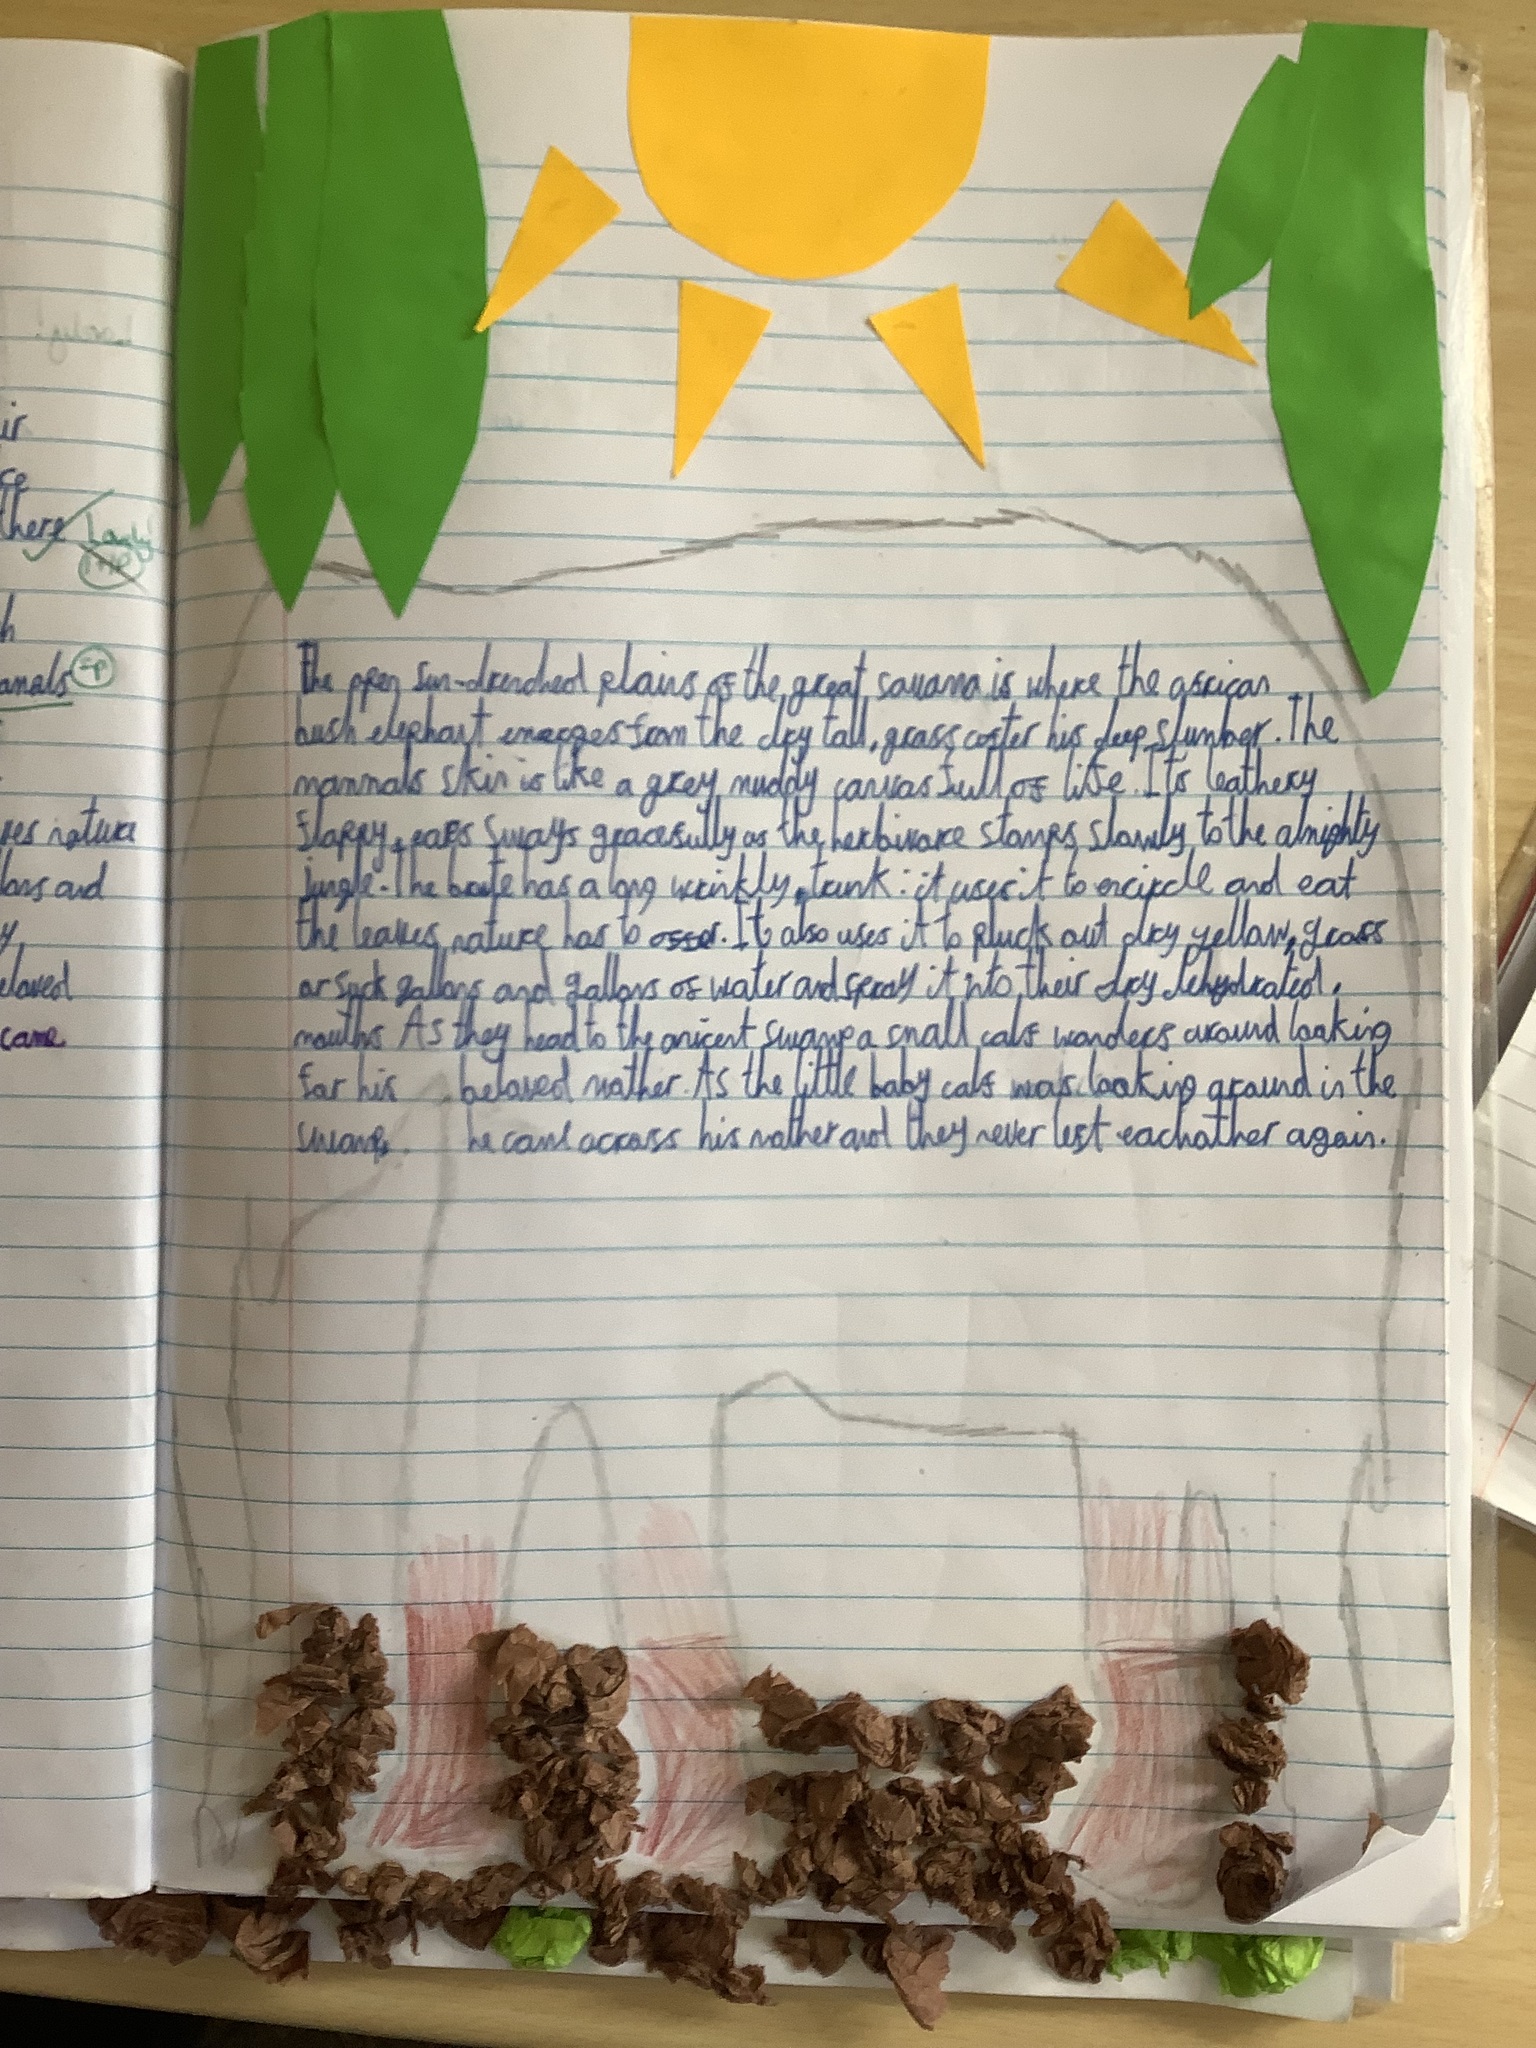 ir
ce
there Lovely
h
anals sp
res nature
lons and
y
eloved
came
The open sun-drenched plains of the great savana is where the african
bush elephant emerges from the dry tall, grass after his deep slumber. The
mammals skin is like a grey muddy canvas full of life. It's leathery
flappy, ears sways gracefully as the herbivore stamps slowly to the almighty
jungle. The brute has a long wrinkly, trunk: it uses it to encircle and eat
the leaves nature has to offer. It also uses it to pluck out dry yellow, grass
or suck gallons and gallons of water and spray it into their dry dehydrated,
mouths As they head to the anicent swamp a small calf wonders around looking
for his beloved mother. As the little baby calf was looking around in the
swamp. he came across his mother and they never left eachother again.